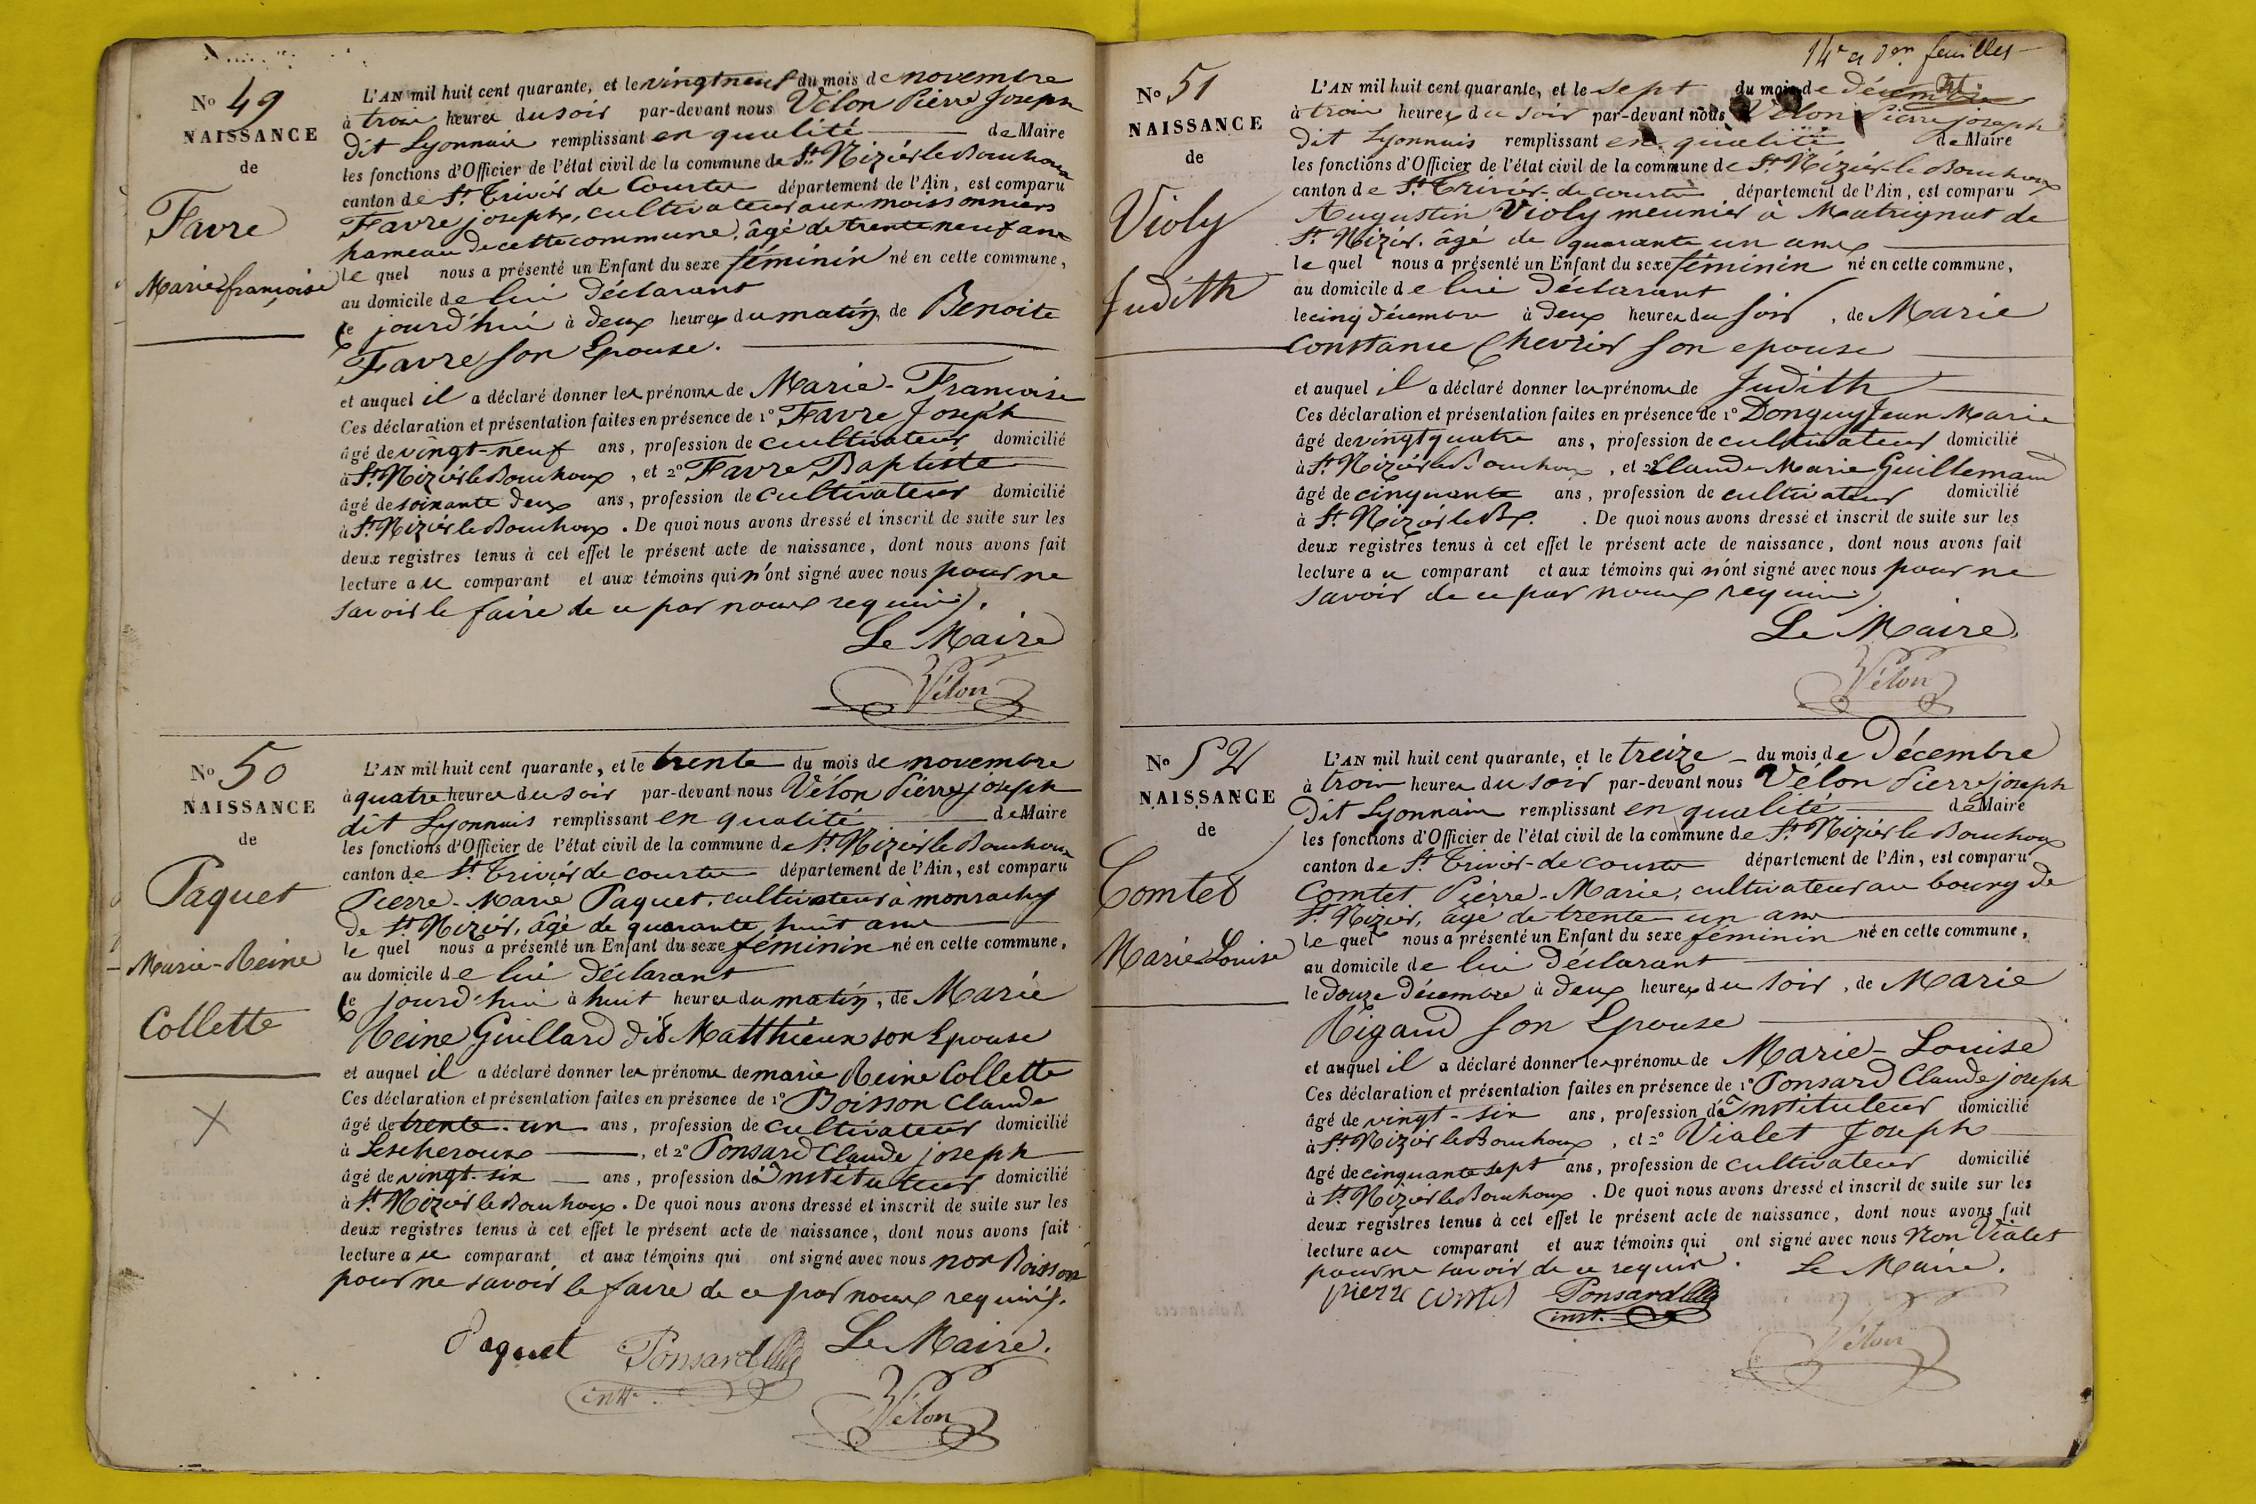 No 49
NAISSANCE
de
Favre
Marie françoise
L'AN mil huit cent quarante, et le vingt neuf du mois de novembre
à trois heures du soir par-devant nous Vélon Pierre Joseph
dit Lyonnais remplissant en qualité de Maire
les fonctions d'Officier de l'état civil de la commune de St. Nizier le Bouchoux
canton de St. Trivier de Courtes département de l'Ain, est comparu
Favre joseph, cultivateur aux moissonniers
hameau de cette commune, âgé de trente neuf ans
le quel nous a présenté un Enfant du sexe féminin né en cette commune,
au domicile de lui déclarant
ce jourd'hui à deux heures du matin, de Benoite
Favre son Epouse.
et auquel il a déclaré donner les prénoms de Marie-Françoise
Ces déclaration et présentation faites en présence de 1º Favre Joseph
âgé de vingt-neuf ans, profession de cultivateur domicilié
à St. Nizier le Bouchoux, et 2º Favre Baptiste
âgé de soixante deux ans, profession de cultivateur domicilié
à St. Nizier le Bouchoux. De quoi nous avons dressé et inscrit de suite sur les
deux registres tenus à cet effet le présent acte de naissance, dont nous avons fait
lecture au comparant et aux témoins qui n'ont signé avec nous pour ne
savoir le faire de ce par nous requis.
Le Maire
Vélon
No 50
NAISSANCE
de
Paquet
Marie-Reine
Collette
X
L'AN mil huit cent quarante, et le trente du mois de novembre
à quatre heures du soir par-devant nous Vélon Pierre joseph
dit Lyonnais remplissant en qualité de Maire
les fonctions d'Officier de l'état civil de la commune de St. Nizier le Bouchoux
canton de St. Trivier de courtes département de l'Ain, est comparu
Pierre-Marie Paquet, cultivateur à monrachy
de St. Nizier, âgé de quarante huit ans
le quel nous a présenté un Enfant du sexe féminin né en cette commune,
au domicile de lui déclarant
ce jourd'hui à huit heures du matin, de Marie
Reine Guillard dit Matthieux son Epouse
et auquel il a déclaré donner les prénoms de marie Reine Collette
Ces déclaration et présentation faites en présence de 1º Boisson Claude
âgé de trente-un ans, profession de cultivateur domicilié
à Lescheroux, et 2º Ponsard Claude joseph
âgé de vingt-six ans, profession d'Instituteur domicilié
à St. Nizier le Bouchoux. De quoi nous avons dressé et inscrit de suite sur les
deux registres tenus à cet effet le présent acte de naissance, dont nous avons fait
lecture au comparant et aux témoins qui ont signé avec nous non Boisson
pour ne savoir le faire de ce par nous requis.
Le Maire.
Paquet Ponsard
instr.
Vélon
14e et der. feuillet
No 51
NAISSANCE
de
Violy
Judith
L'AN mil huit cent quarante, et le sept du mois de décembre
à trois heures du soir par-devant nous Vélon Pierre joseph
dit Lyonnais remplissant en qualité de Maire
les fonctions d'Officier de l'état civil de la commune de St. Nizier-le Bouchoux
canton de St. Trivier-de courtes département de l'Ain, est comparu
Augustin Violy meunier à Matrignat de
St. Nizier. âgé de quarante un ans
le quel nous a présenté un Enfant du sexe féminin né en cette commune,
au domicile de lui déclarant
le cinq décembre à deux heures du soir, de Marie
Constance Chevrier son epouse
et auquel il a déclaré donner les prénoms de Judith
Ces déclaration et présentation faites en présence de 1º Donguy Jean Marie
âgé de vingt quatre ans, profession de cultivateur domicilié
à St. Nizier le Bouchoux, et 2º Claude Marie Guillemaud
âgé de cinquante ans, profession de cultivateur domicilié
à St. Nizier le Bx. . De quoi nous avons dressé et inscrit de suite sur les
deux registres tenus à cet effet le présent acte de naissance, dont nous avons fait
lecture au comparant et aux témoins qui n'ont signé avec nous pour ne
savoir de ce par nous requis
Le Maire,
Vélon
No 52
NAISSANCE
de
Comtet
Marie Louise
L'AN mil huit cent quarante, et le treize du mois de Décembre
à trois heures du soir par-devant nous Vélon Pierre joseph
dit Lyonnais remplissant en qualité de Maire
les fonctions d'Officier de l'état civil de la commune de St. Nizier le Bouchoux
canton de St. Trivier-de courtes département de l'Ain, est comparu
Comtet Pierre-Marie, cultivateur au bourg de
St. Nizier, âgé de trente un ans
le quel nous a présenté un Enfant du sexe féminin né en cette commune,
au domicile de lui déclarant
le douze Décembre à deux heures du soir, de Marie
Rigaud son Epouse
et auquel il a déclaré donner les prénoms de Marie-Louise
Ces déclaration et présentation faites en présence de 1º Ponsard Claude joseph
âgé de vingt-six ans, profession d'Instituteur domicilié
à St. Nizier le Bouchoux, et 2º Vialet Joseph
âgé de cinquante sept ans, profession de cultivateur domicilié
à St. Nizier le Bouchoux. De quoi nous avons dressé et inscrit de suite sur les
deux registres tenus à cet effet le présent acte de naissance, dont nous avons fait
lecture au comparant et aux témoins qui ont signé avec nous non Vialet
pour ne savoir de ce requis. Le Maire.
pierre comtet Ponsard
inst.
Vélon